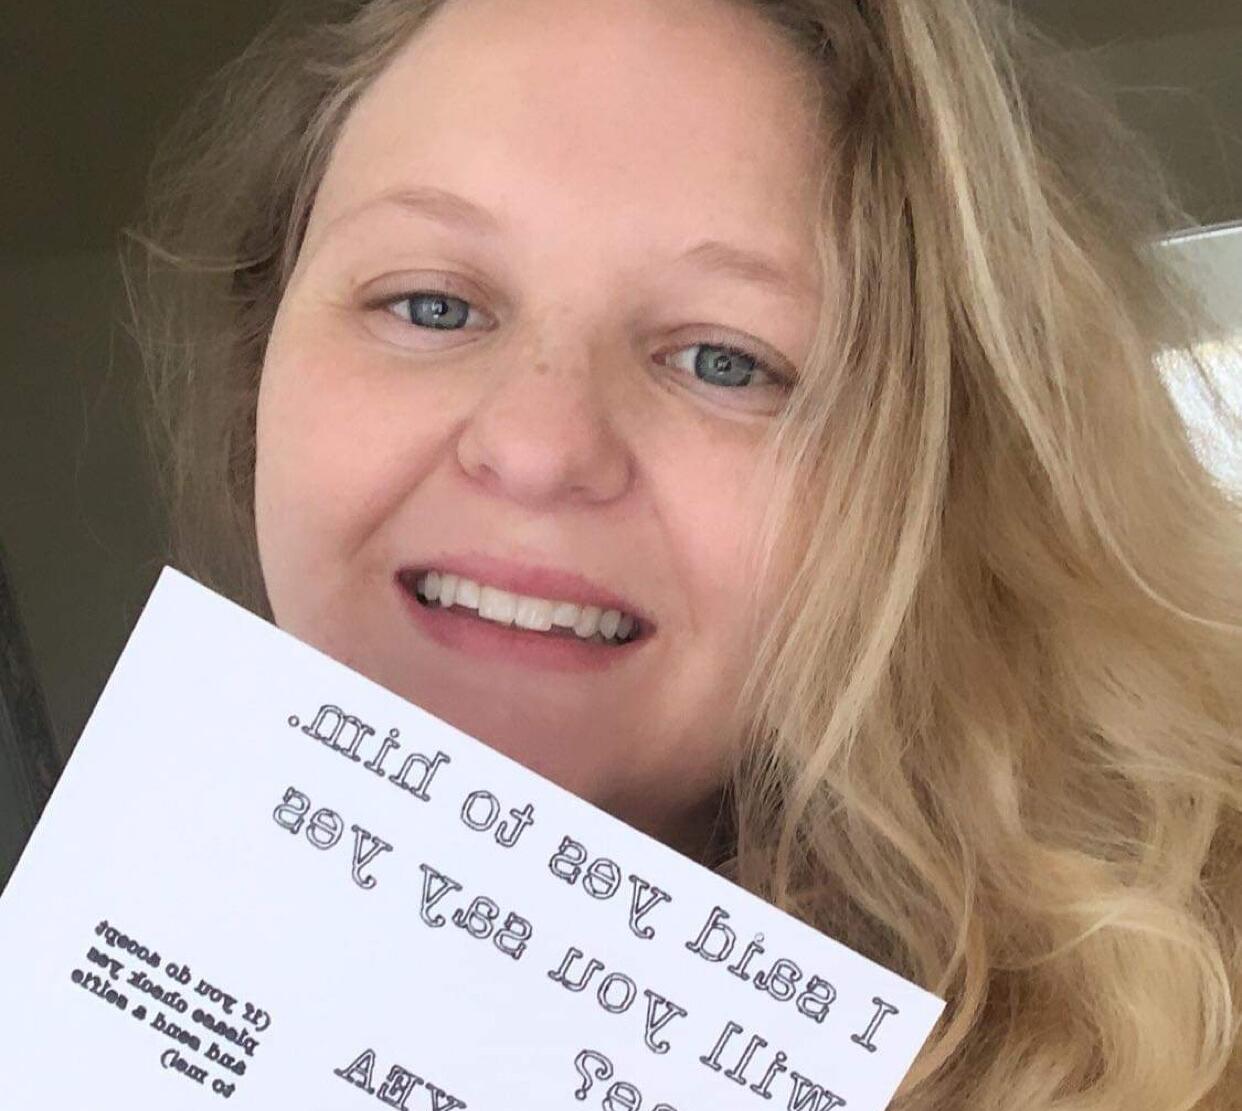 I said yes to him.
will you say yes
YEA
(if you do accept
please check yes
and send a selfie
to me)